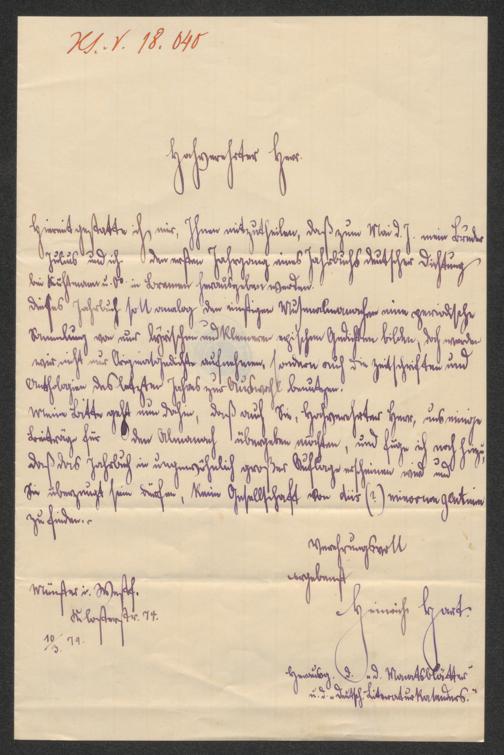 H.I.N. 18.040
Hochverehrter Herr.
Hiermit gestatte ich mir, Ihnen mitzutheilen, daß zum Mai d. J. mein Bruder
Julius und ich den ersten Jahrgang eines Jahrbuchs deutscher Dichtung
bei Kühtmann u. Co in Bremen herausgeben werden.
Dieses Jahrbuch soll analog den einstigen Musenalmanachen eine periodische
Sammlung von nur lyrischen und kleineren epischen Gedichten bilden, doch werden
wir nicht nur Originalgedichte aufnehmen, sondern auch die Zeitschriften und
Anthologien des letzten Jahres zur Auswahl benutzen.
Meine Bitte geht nun dahin, daß auch Sie, hochverehrter Herr, uns einige
Beiträge für den Almanach übergeben möchten, und füge ich noch hinzu,
daß das Jahrbuch in ungewöhnlich großer Auflage erscheinen wird und
Sie überzeugt sein dürfen, keine Gesellschaft von (?) minorum gentium
zu finden.
Verehrungsvoll
ergebenst
Heinrich Hart.
Münster i. Westf.
Klosterstr. 74.
10/3. 79.
Herausg. d. „d. Monatsblätter"
u. d. „deutsch. Literaturkalenders."